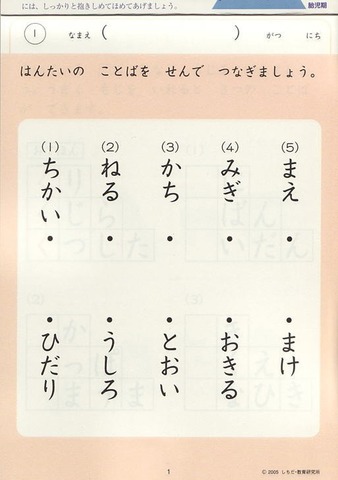 には、しっかりと抱きしめてほめてあげましょう。
胎児期
1 なまえ( ) がつ にち
はんたいの ことばを せんで つなぎましょう。
(1) (2) (3) (4) (5)
ちかい
ねる
かち
みぎ
まえ
ひだり
うしろ
とおい
おきる
まけ
1
© 2005 しちだ・教育研究所